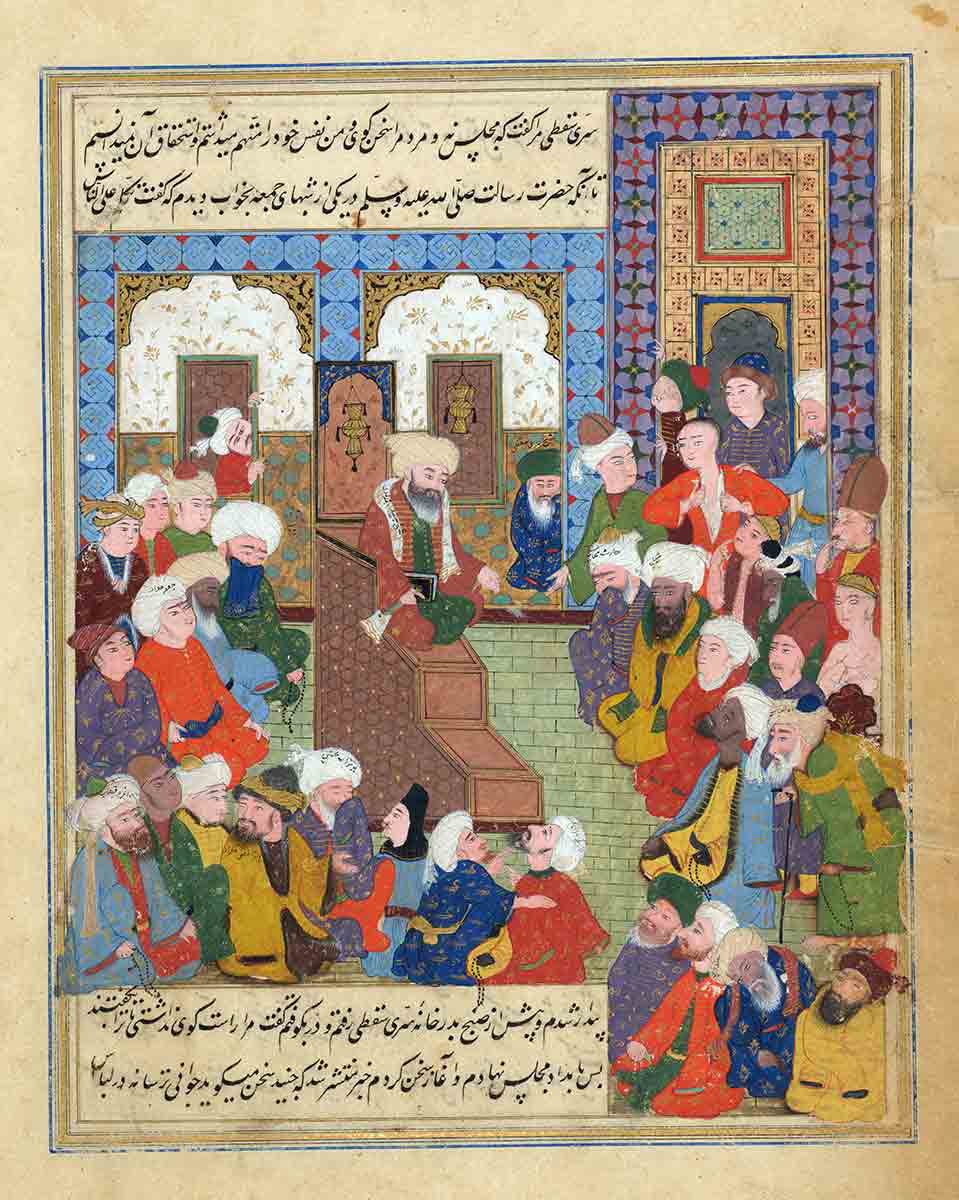 سری سقطی مرا گفت که مجلس نه و مردم را سخن گوی و من نفس خود را متهم میداشتم و استحقاق آن نمیدانستم
تا آنکه حضرت رسالت صلی الله علیه وسلم در یکی از شبهای جمعه بخواب دیدم که گفت تکلم علی الناس
بیدار شدم و پیش از صبح بدر خانه سری سقطی رفتم و در بکوفتم گفت مرا راست گوی نداشتی تا ترا نگفتند
پس بامداد مجلس نهادم و آغاز سخن کردم خبر منتشر شد که جنید سخن میگوید جوانی ترسا نه در لباس